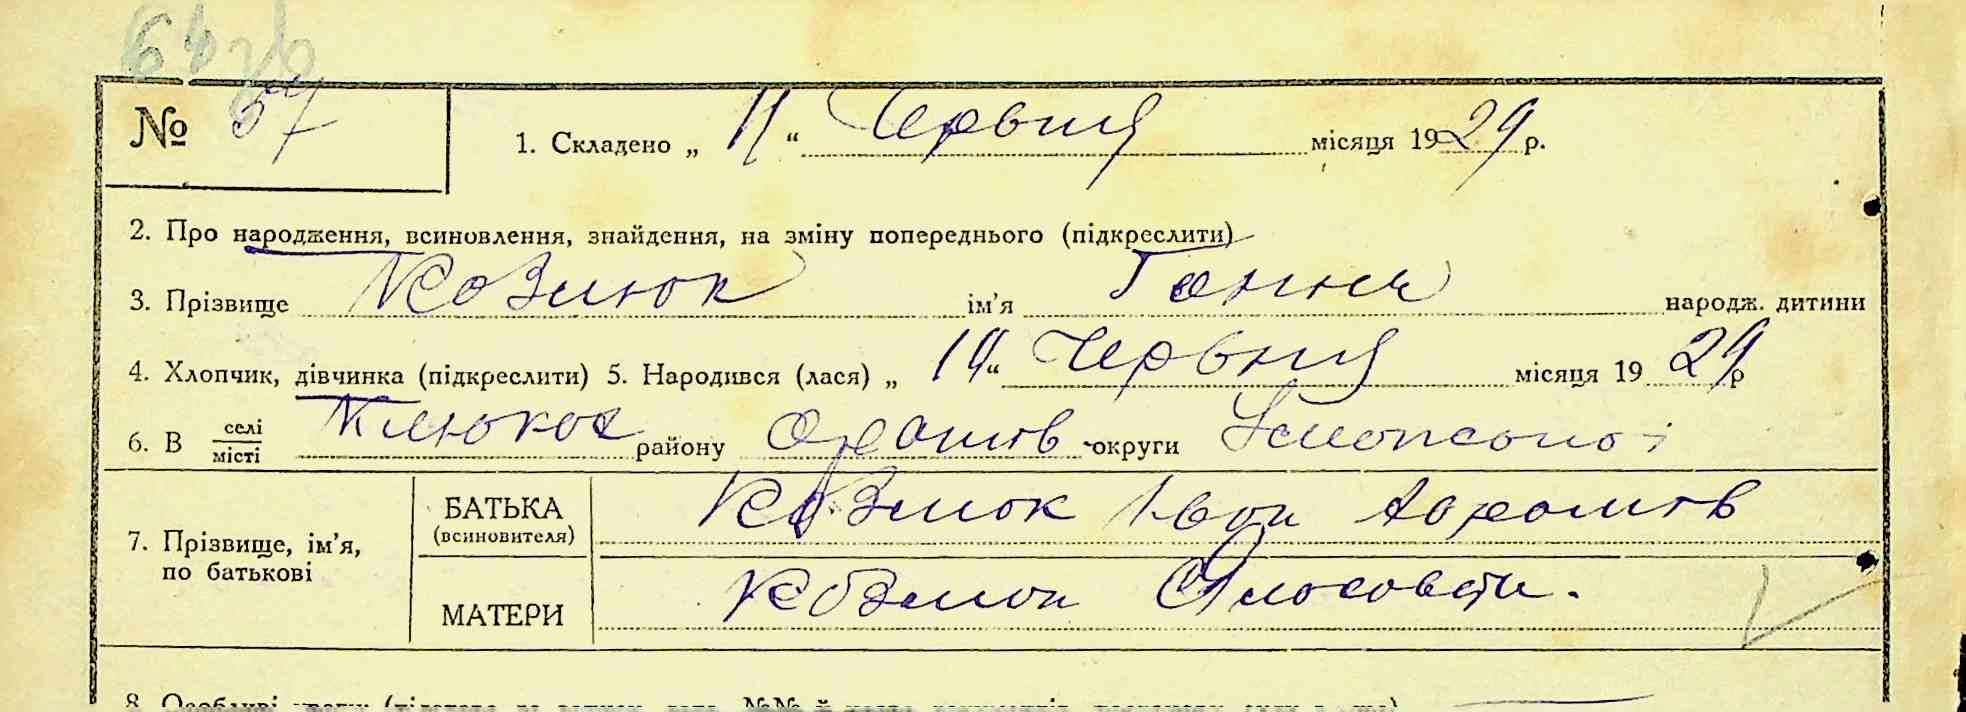 № 57
1. Складено „ 11 “ Червня місяця 1929 р.
2. Про народження, всиновлення, знайдення, на зміну попереднього (підкреслити)
3. Прізвище Козлюк ім’я Ганна народж. дитини
4. Хлопчик, дівчинка (підкреслити) 5. Народився (лася) „ “ Червня місяця 1929 р
6. В селі місті району Оратів округи
7. Прізвище, ім’я, по батькові
БАТЬКА
(всиновителя)
Козлюк Іван
МАТЕРИ
Козлюк